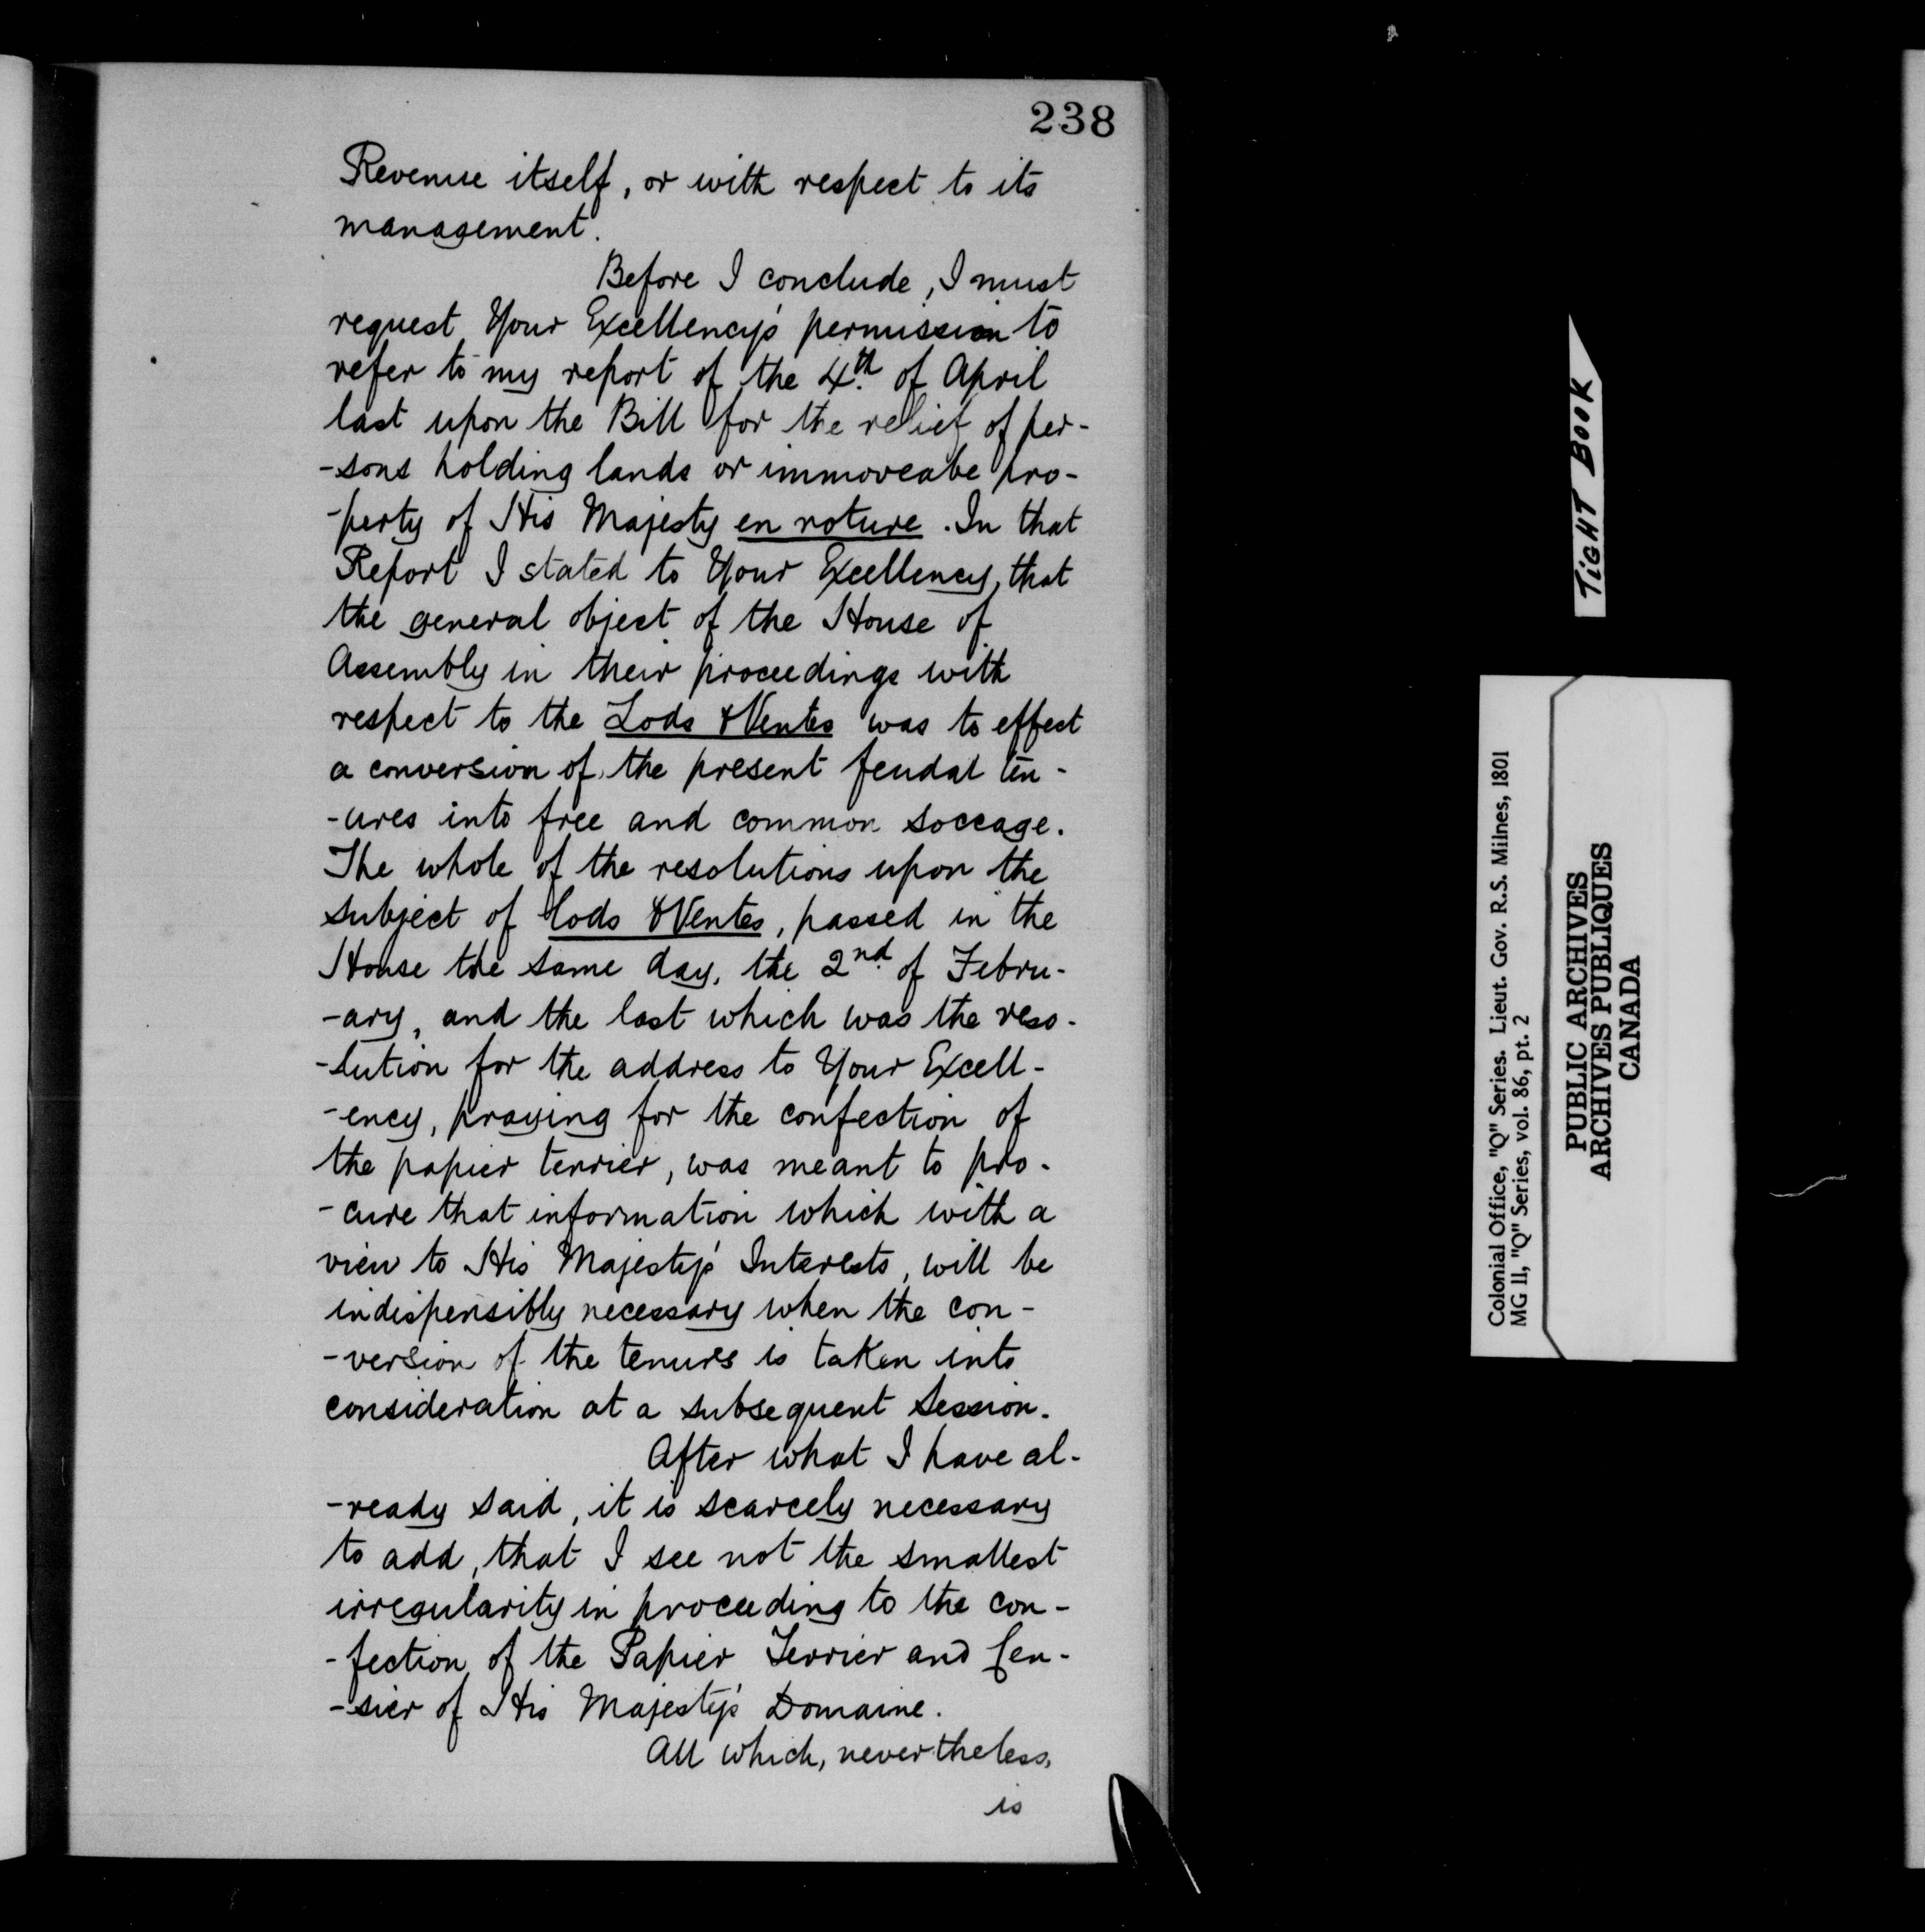 238
Revenue itself, or with respect to its
management.
Before I conclude, I must
request Your Excellency's permission to
refer to my report of the 4th of April
last upon the Bill for the relief of per-
-sons holding lands or immoveabe pro-
-perty of His Majesty en roture. In that
Report I stated to Your Excellency, that
the general object of the House of
Assembly in their proceedings with
respect to the Lods & Ventes was to effect
a conversion of the present feudal ten-
-ures into free and common soccage.
The whole of the resolutions upon the
subject of Lods & Ventes, passed in the
House the same day, the 2nd of Febru-
-ary, and the last which was the reso-
-lution for the address to Your Excell-
-ency, praying for the confection of
the papier terrier, was meant to pro-
-cure that information which with a
view to His Majesty's Interests, will be
indispensibly necessary when the con-
-version of the tenures is taken into
consideration at a subsequent Session.
After what I have al-
-ready said, it is scarcely necessary
to add, that I see not the smallest
irregularity in proceeding to the con-
-fection of the Papier Terrier and Cen-
-sier of His Majesty's Domaine.
All which, nevertheless,
is
TIGHT BOOK
Colonial Office, "Q" Series. Lieut. Gov. R.S. Milnes, 1801
MG 11, "Q" Series, vol. 86, pt. 2
PUBLIC ARCHIVES
ARCHIVES PUBLIQUES
CANADA